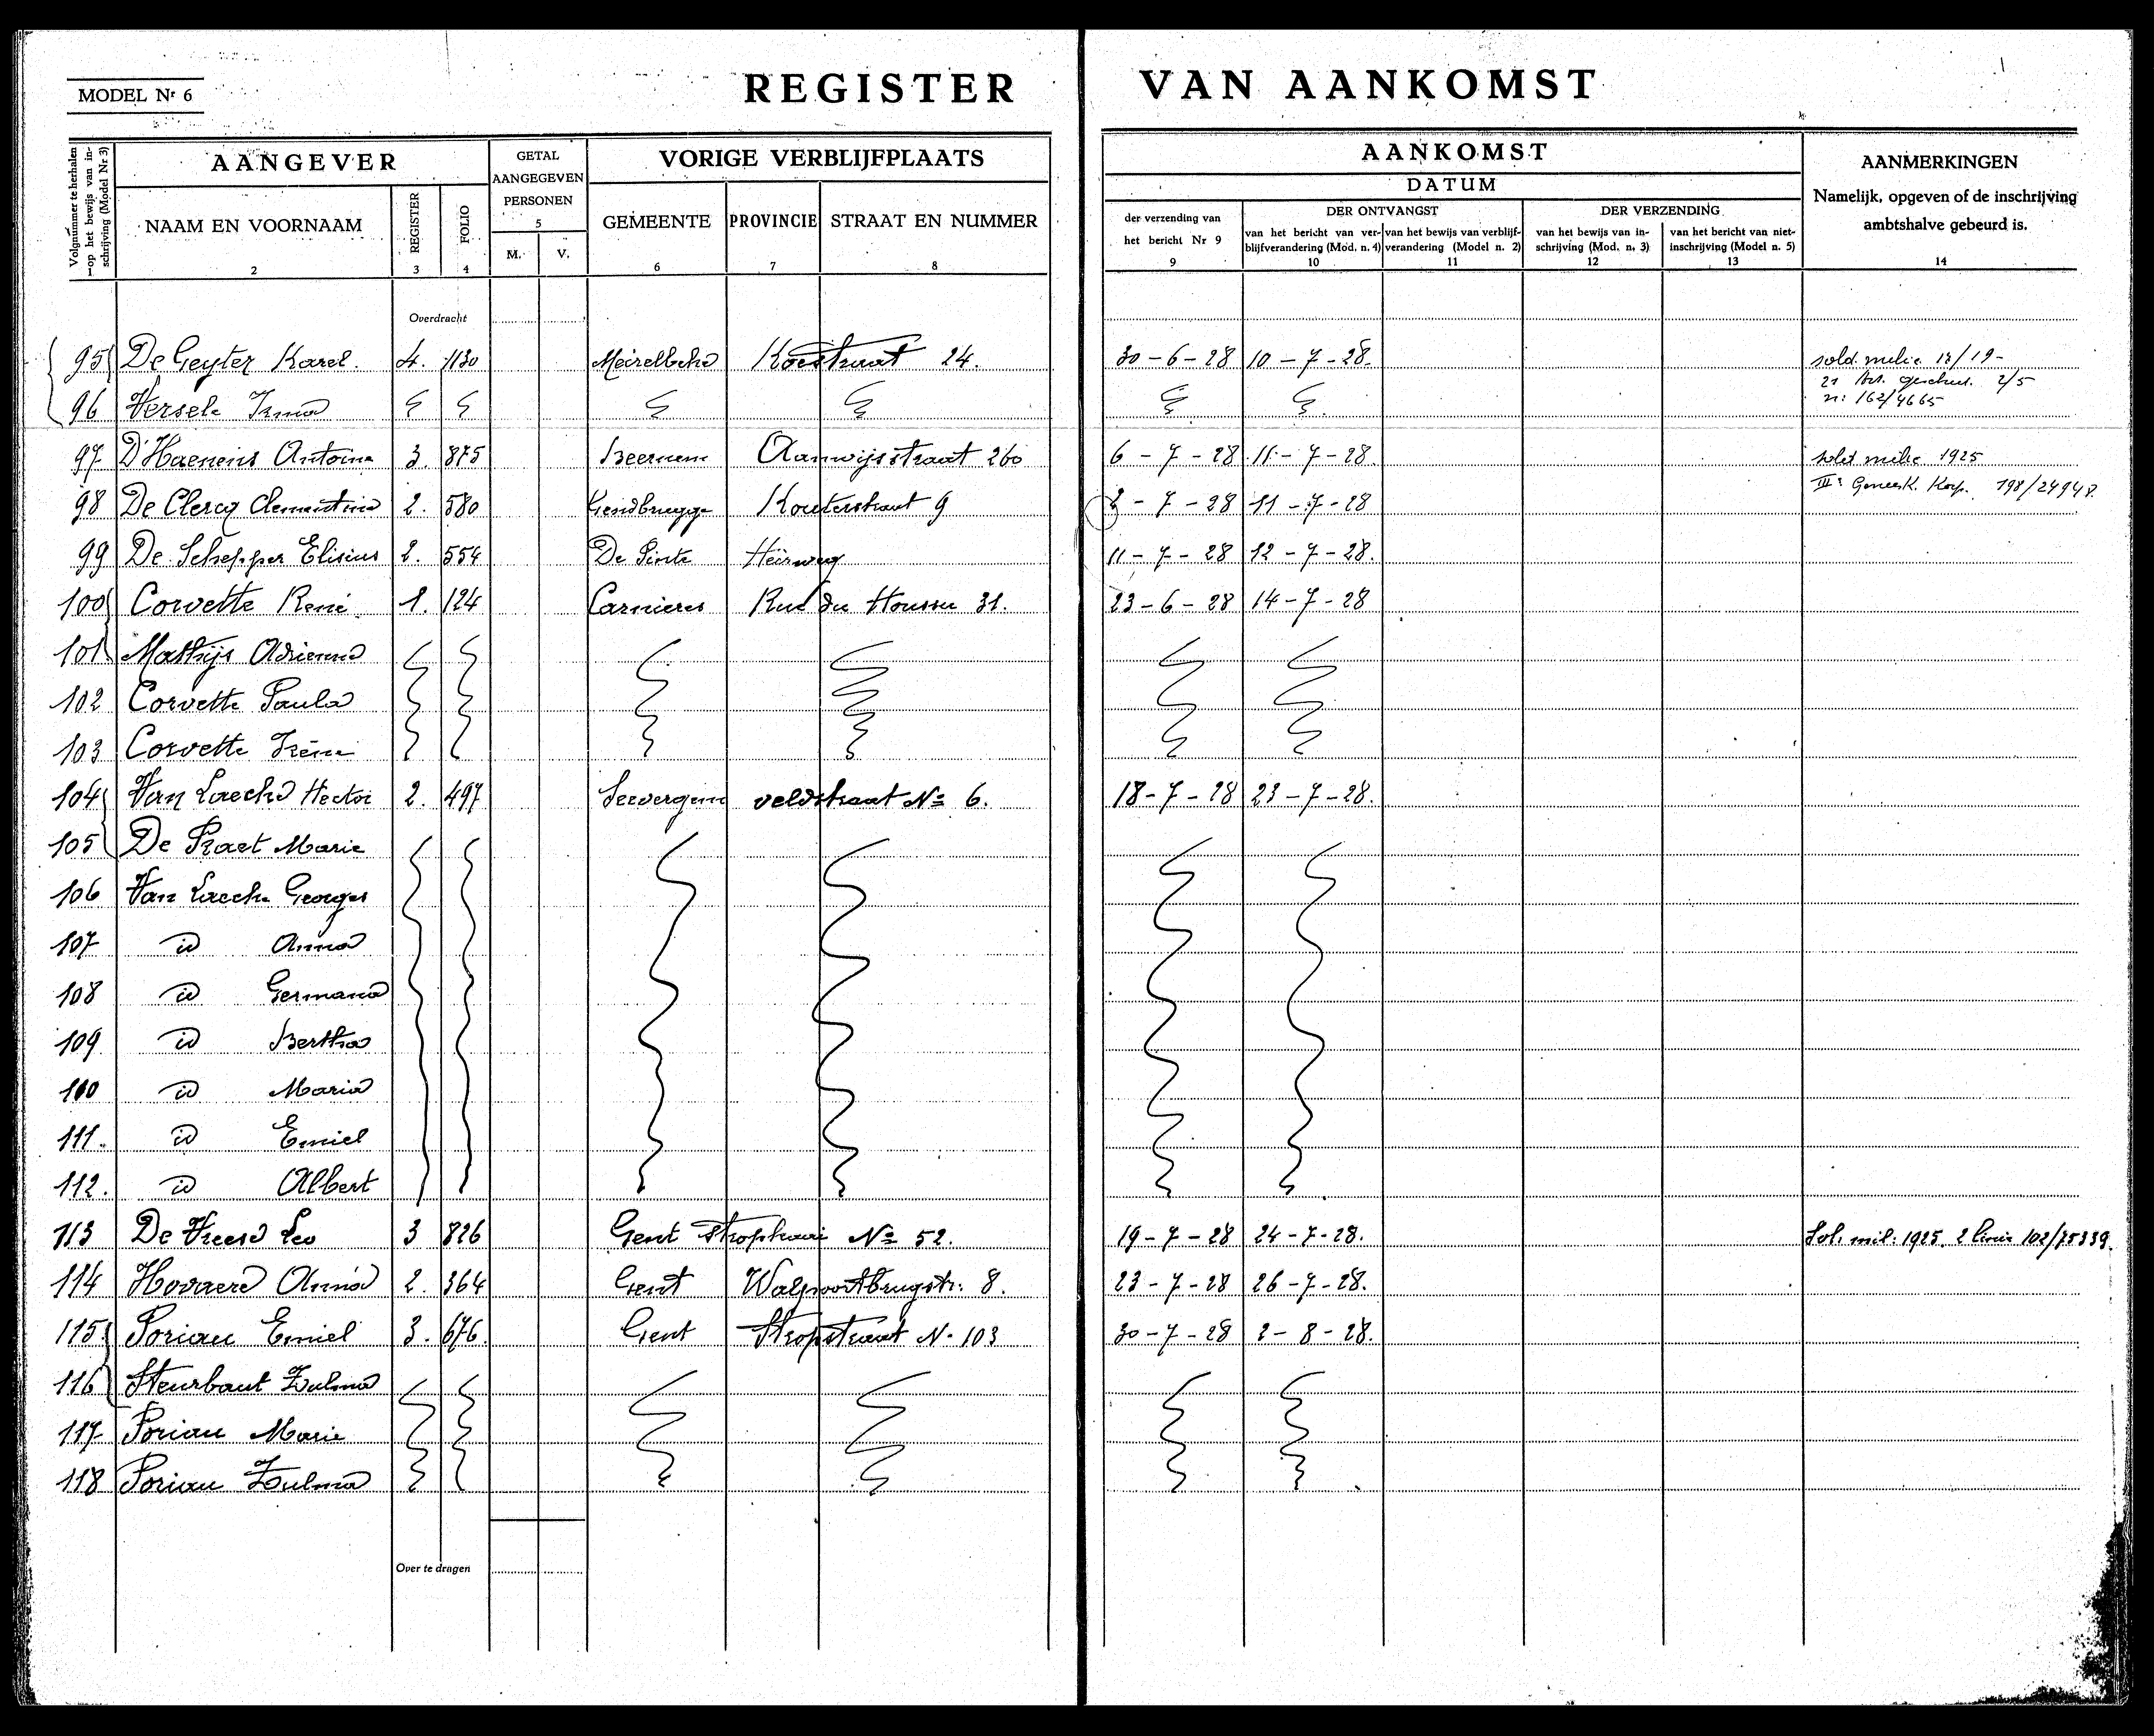 REGISTER VAN AANKOMST
MODEL Nr 6
Volgnummer te herhalen op het bewijs van inschrijving (Model Nr 3)
1
AANGEVER
NAAM EN VOORNAAM
2
REGISTER
3
FOLIO
4
GETAL
AANGEGEVEN
PERSONEN
5
M. V.
VORIGE VERBLIJFPLAATS
GEMEENTE PROVINCIE STRAAT EN NUMMER
6 7 8
AANKOMST
DATUM
der verzending van
het bericht Nr 9
9
DER ONTVANGST
van het bericht van ver-
blijfverandering (Mod. n. 4)
10
van het bewijs van verblijf-
verandering (Model n. 2)
11
DER VERZENDING
van het bewijs van in-
schrijving (Mod. n. 3)
12
van het bericht van niet-
inschrijving (Model n. 5)
13
AANMERKINGEN
Namelijk, opgeven of de inschrijving
ambtshalve gebeurd is.
14
Overdracht
95 De Geyter Karel. 4. 1130 Meirelbeke Koestraat 24. 30-6-28 10-7-28. sold. milic. 19-
2/5
96 Versele Irma n: 162/4665
97 D'Haenens Antoine 3. 875 Beernem Aanwijsstraat 260 6-7-28 11-7-28. sold milic 1925
98 De Clercq Clementina 2. 580 Gendbrugge Kouterstraat 9 2-7-28 11-7-28 IIIe Geneesk. Korp. 198/24948.
99 De Schepper Elisius 2. 554 De Pinte Heirweg 11-7-28 12-7-28.
100 Corvette René. 1. 124 Carnieres Rue du Houssu 31. 23-6-28 14-7-28
101 Mathijs Adrienne
102 Corvette Paula
103 Corvette Irène
104 Van Laecke Hector 2. 497 Seevergem veldstraat No 6. 18-7-28 23-7-28.
105 De Praet Marie
106 Van Laecke Georges
107 id Anna
108 id Germana
109 id Bertha
110 id Maria
111. id Emiel
112. id Albert
113 De Vreese Leo 3 826 Gent Stropkaai No 52. 19-7-28 24-7-28. Sol. mil: 1925. 2 linie 102/75339.
114 Hovaere Anna 2. 364 Gent Walpoortbrugstr: 8. 23-7-28 26-7-28.
115 Poriau Emiel 3. 676. Gent Stropstraat N. 103 30-7-28 2-8-28.
116 Steurbaut Zulma
117 Poriau Marie
118 Poriau Zulma
Over te dragen